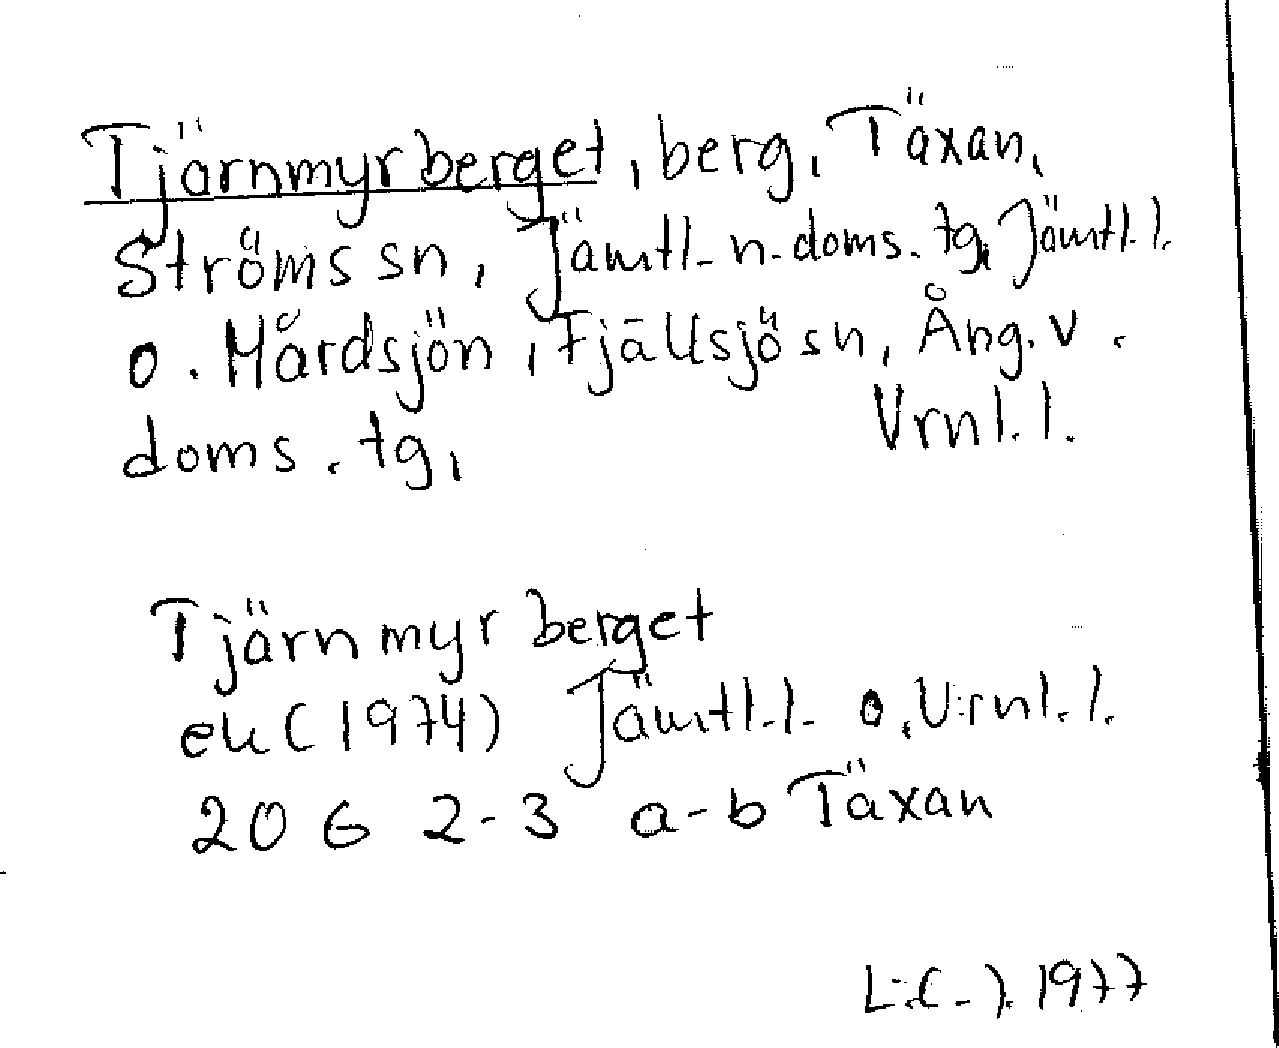 Tjärnmyrberget, berg, Täxan,
Ströms sn, Jämtl. n. doms. tg, Jämtl. l.
o. Mårdsjön, Fjällsjö sn, Ång. v.
doms. tg, Vrnl. l.
Tjärnmyrberget
ek (1974) Jämtl. l. o. Vrnl. l.
20 G 2-3 a-b Täxan
1977